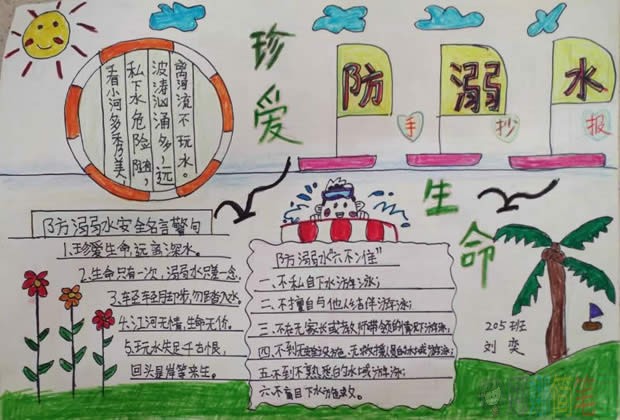 珍爱
生命
防溺水
手抄报
看小河多秀美
私下水危险
波涛汹涌多
离河流不玩水。
防溺水安全名言警句
1.珍爱生命,远离深水。
2.生命只有一次,溺水只差一念。
4.江河无情,生命无价。
5.玩水失足千古恨,
回头是岸等来生。
防溺水"六不准"
一、不私自下水游泳;
二、不擅自与他人结伴游泳;
三、不在无家长或教师带领的情况下游泳;
四、不到无安全设施、无救援人员的水域游泳;
五、不到不熟悉的水域游泳;
六、不盲目下水施救。
205班
刘奕